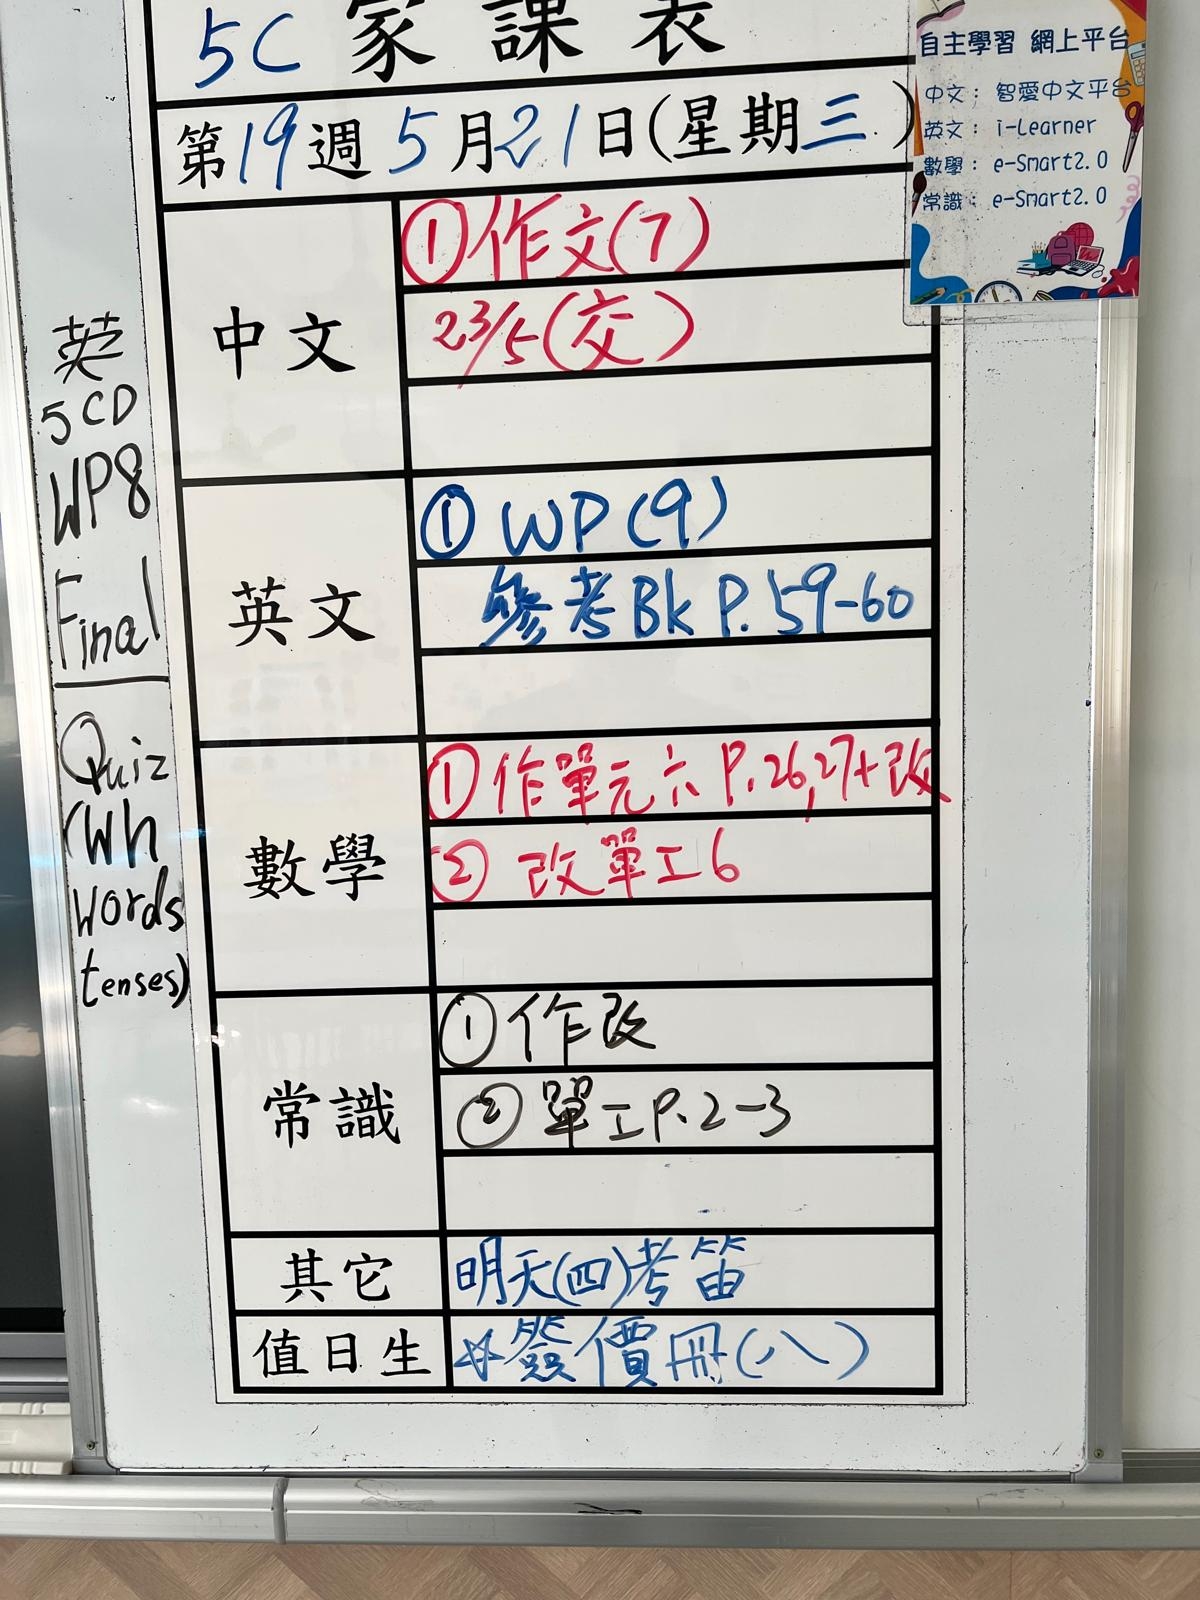 5C 家課表
第19週5月21日(星期三)
中文
①作文(7)
23/5(交)
英文
① WP(9)
參考Bk P.59-60
數學
①作單元六 P.26,27+改
② 改單工6
常識
①作改
②單工P.2-3
其它
明天(四)考笛
值日生
☆簽價冊(八)
英
5CD
WP8
Final
Quiz
(Wh
words
tenses)
自主學習 網上平台
中文： 智愛中文平台
英文： i-Learner
數學： e-Smart2.0
常識： e-Smart2.0